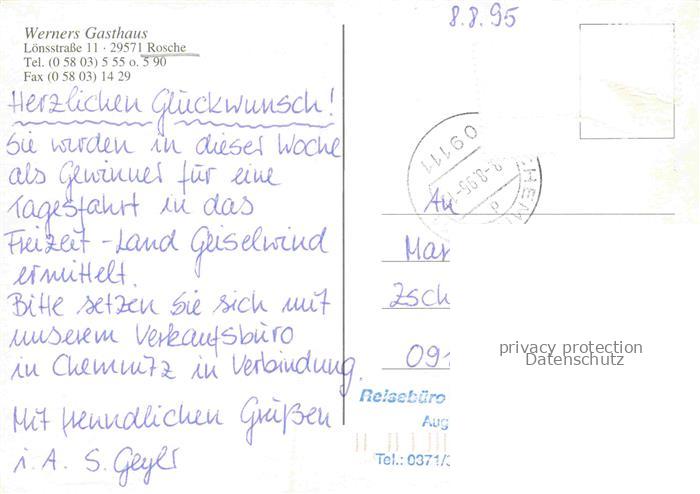 8.8.95
Werners Gasthaus
Lönsstraße 11 · 29571 Rosche
Tel. (0 58 03) 5 55 o. 5 90
Fax (0 58 03) 14 29
Herzlichen Glückwunsch!
Sie wurden in dieser Woche
als Gewinner für eine
Tagesfahrt in das
Freizeit-Land Geiselwind
ermittelt.
Bitte setzen Sie sich mit
unserem Verkaufsbüro
in Chemnitz in Verbindung.
Mit freundlichen Grüßen
i. A. S. Geyer
09111
An
Mar
Zsch
091
privacy protection
Datenschutz
Reisebüro
Aug
Tel.: 0371/3